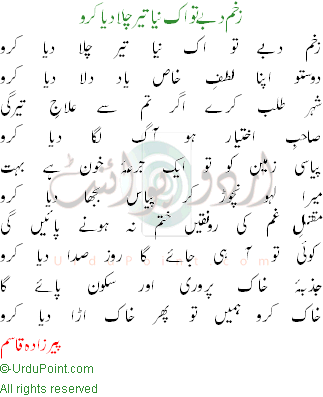 زخم دبے تو اک نیا تیر چلا دیا کرو
زخم دبے تو اک نیا تیر چلا دیا کرو
دوستو اپنا لطف خاص یاد دلا دیا کرو
شہر طلب کرے اگر تم سے علاج تیرگی
صاحب اختیار ہو آگ لگا دیا کرو
پیاسی زمین کو تو ایک جرعۂ خون ہے بہت
میرا لہو نچوڑ کر پیاس بجھا دیا کرو
مقتل غم کی رونقیں ختم نہ ہونے پائیں گی
کوئی تو آ ہی جائے گا روز صدا دیا کرو
جذبۂ خاک پروری اور سکون پائے گا
خاک کرو ہمیں تو پھر خاک اڑا دیا کرو
پیرزادہ قاسم
©-UrduPoint.com
All rights reserved
اردو پوائنٹ
UrduPoint.com